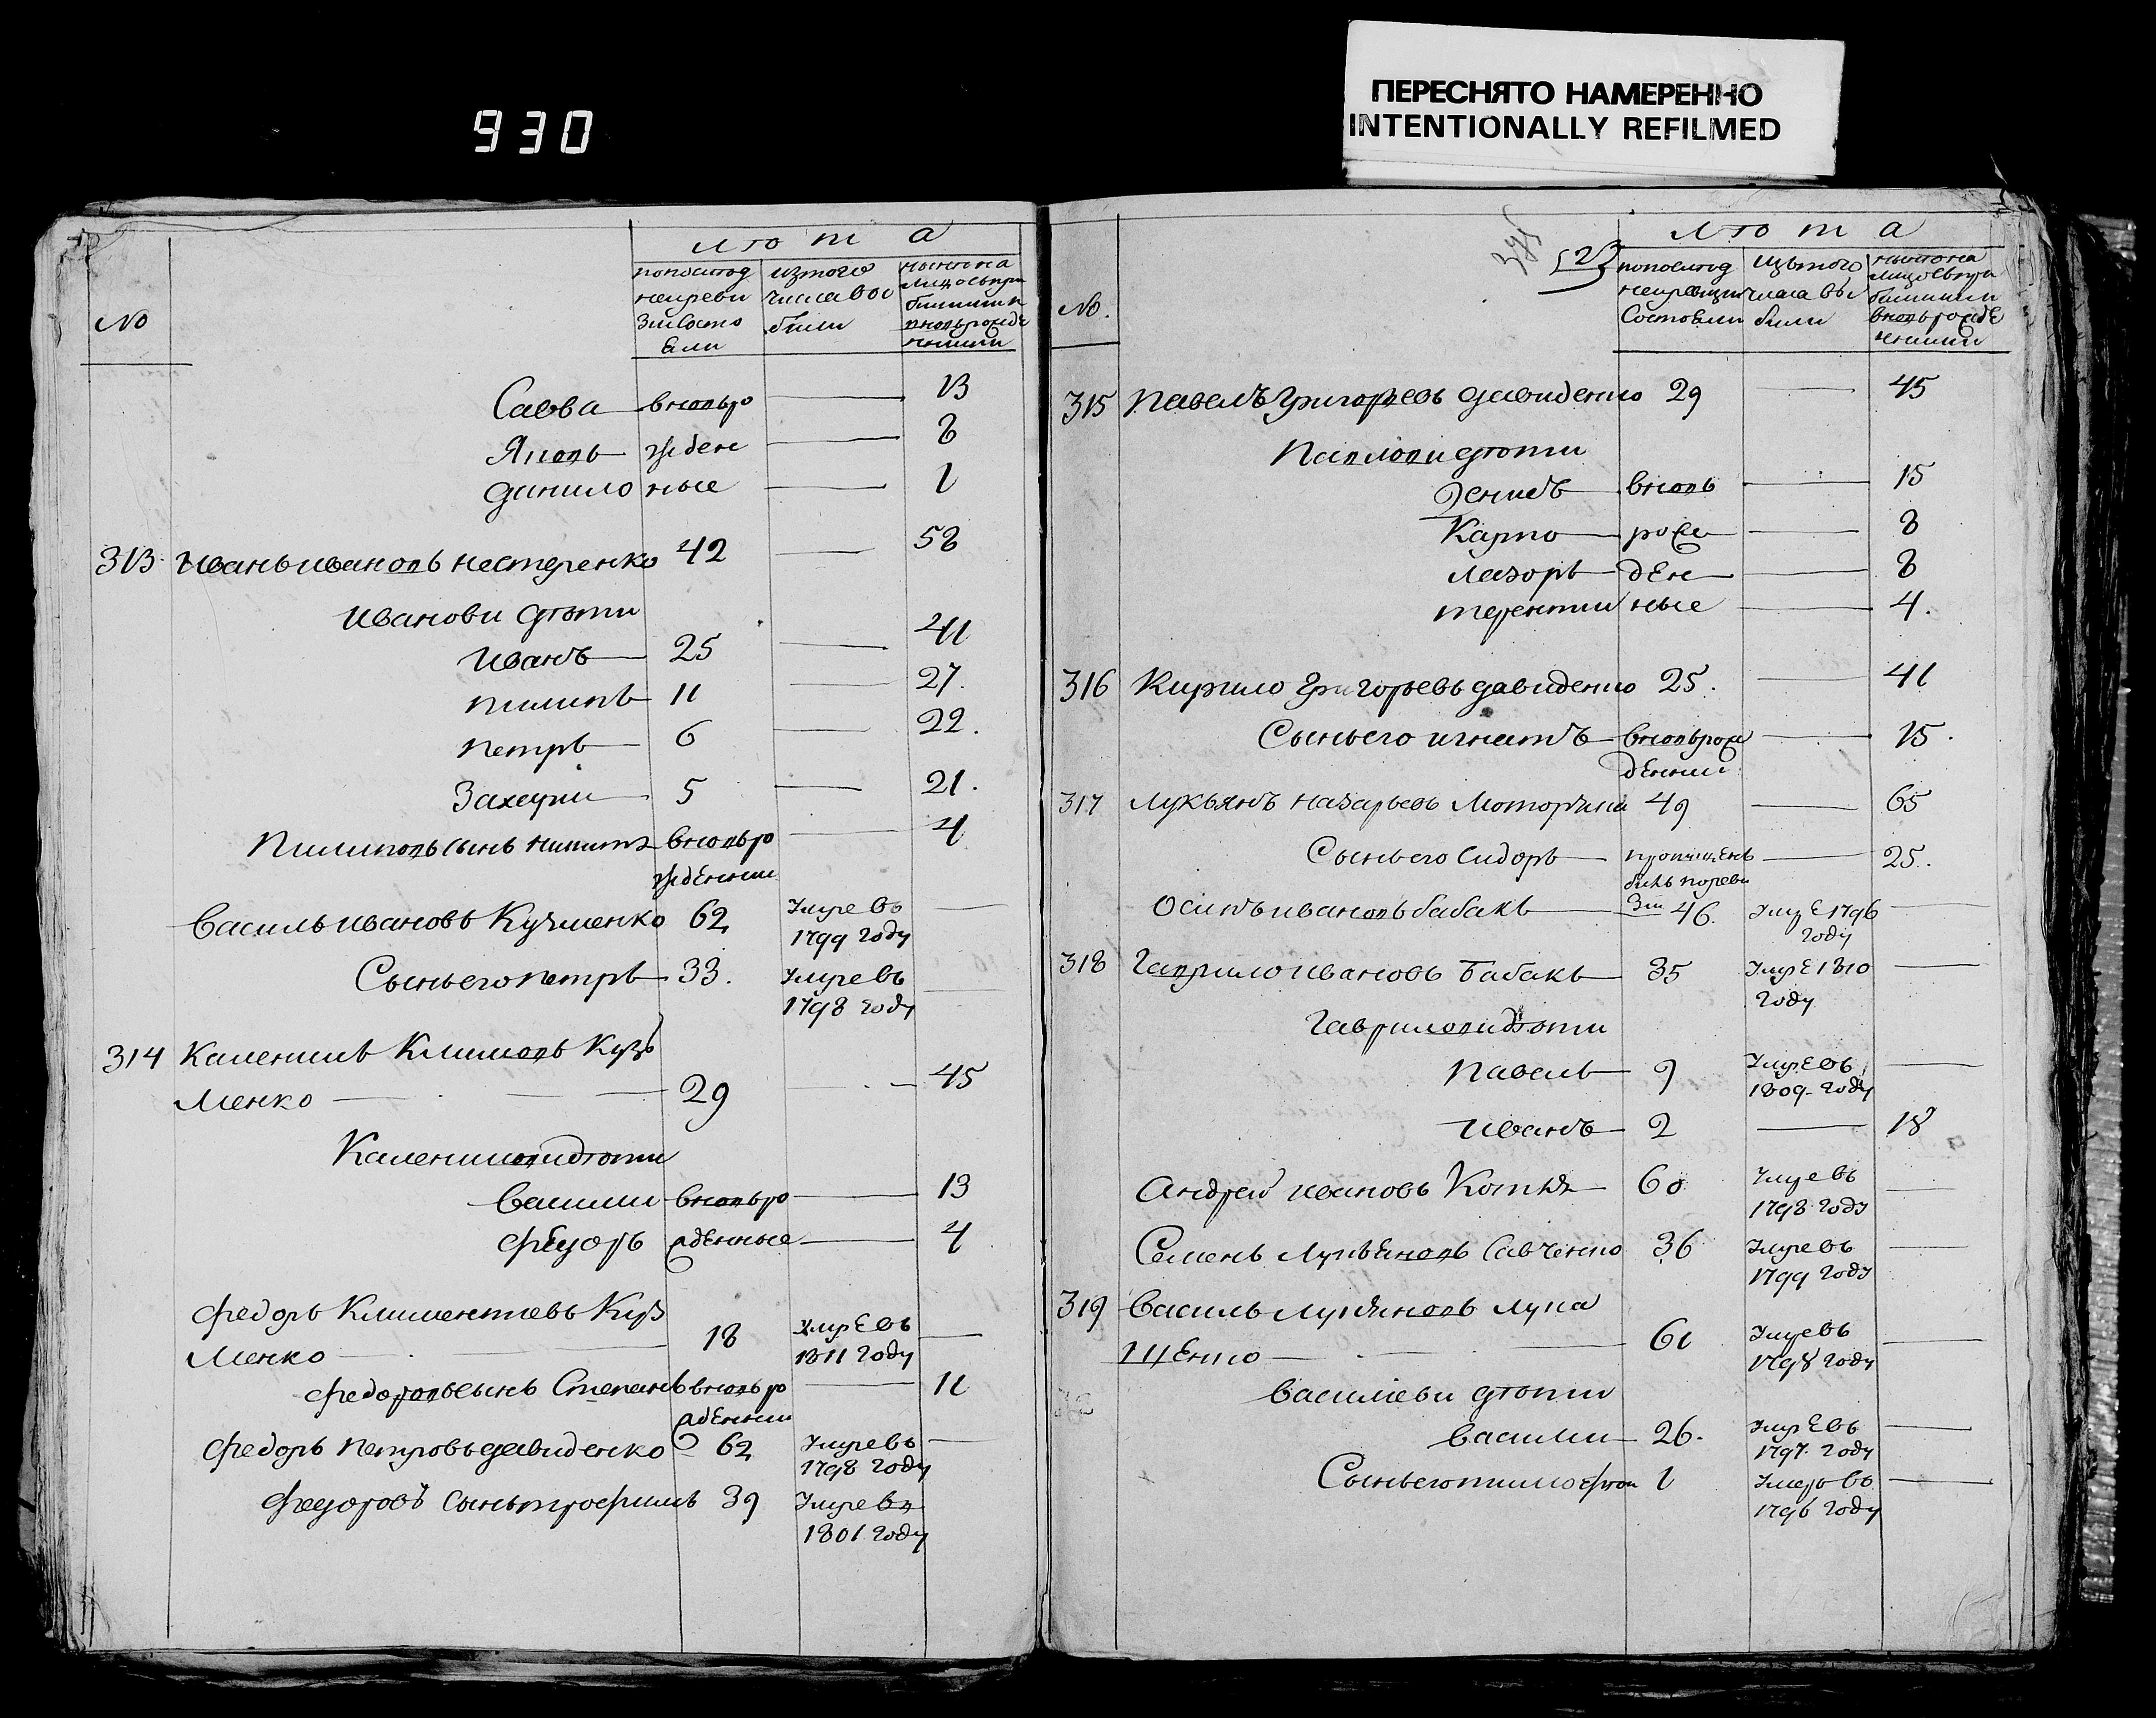 930
ПЕРЕСНЯТО НАМЕРЕННО
INTENTIONALLY REFILMED
№
лѣта
попослѣд
ней реви
зии Состо
Ели
изтого
числа вы
были
нынѣ на
лицо съ при
былими и
вновь рожде
нными
Савва вновьро — 13
Яковъ жден — 8
данило ные — 1
313 Иванъ ивановъ нестеренко 42 — 58
Иванови дѣти
Иванъ 25 — 41
пилипъ 11 — 27.
петръ 6 — 22.
Захарии 5 — 21.
Пилиповъ сынъ никита вновьро — 4
жденнии
Василь ивановъ Кузменко 62 Умре въ —
1799 году
Сынъ его петръ 33. Умре въ —
1798 году
314 Каленикъ Климовъ Кузь
Менко 29 — 45
Каленикови дѣти
Василии вновьро — 13
Федоръ жденные — 4
Федоръ Климентиевъ Куз
Менко 18 Умре въ —
1811 году
Федоровъ сынъ Степанъ вновь ро — 11
жденнии
Федоръ петровъ давиденко 62 Умре въ —
1798 году
Федоровъ Сынъ трофимъ 39 Умре въ
1801 году
523
№.
лѣта
попослѣд
ней ревизии
Состояли
изъ того
числа вы
были
нынѣ на
лицо съ при
былими
вновь рожде
нними
315 Павелъ Григорьевъ давиденко 29 — 45
Павлови дѣти
Денисъ вновь — 15
Карпо рож — 8
Лазоръ дЕн — 8
терентии ные — 4.
316 Кирило Григорьевъ давиденко 25. — 41
Сынъ его игнатъ вновьрож — 15.
дЕннии
317 Лукьянъ назарьевъ Моторний 49 — 65
Сынъ его Сидоръ пропущенъ — 25.
билъ пореви
Осипъ ивановъ бабакъ зии 46. Умре 1796 —
году
318 Гаврило ивановъ Бабакъ 35 Умре 1810 —
году
Гаврилови дѣти
Павелъ 9 Умре въ —
1809. году
Иванъ 2 — 18
Андрей ивановъ Котъ 60 Умре въ —
1798 году
Семенъ Лукьяновъ Савченко 36 Умре въ —
1799 году
319 Василь Лукьяновъ лука
щЕнко — 61 Умре въ —
1798 году
Василiеви дѣти
Василии 26. Умре въ —
1797. году
Сынъ его тимофеи 1 Умеръ въ —
1796 году